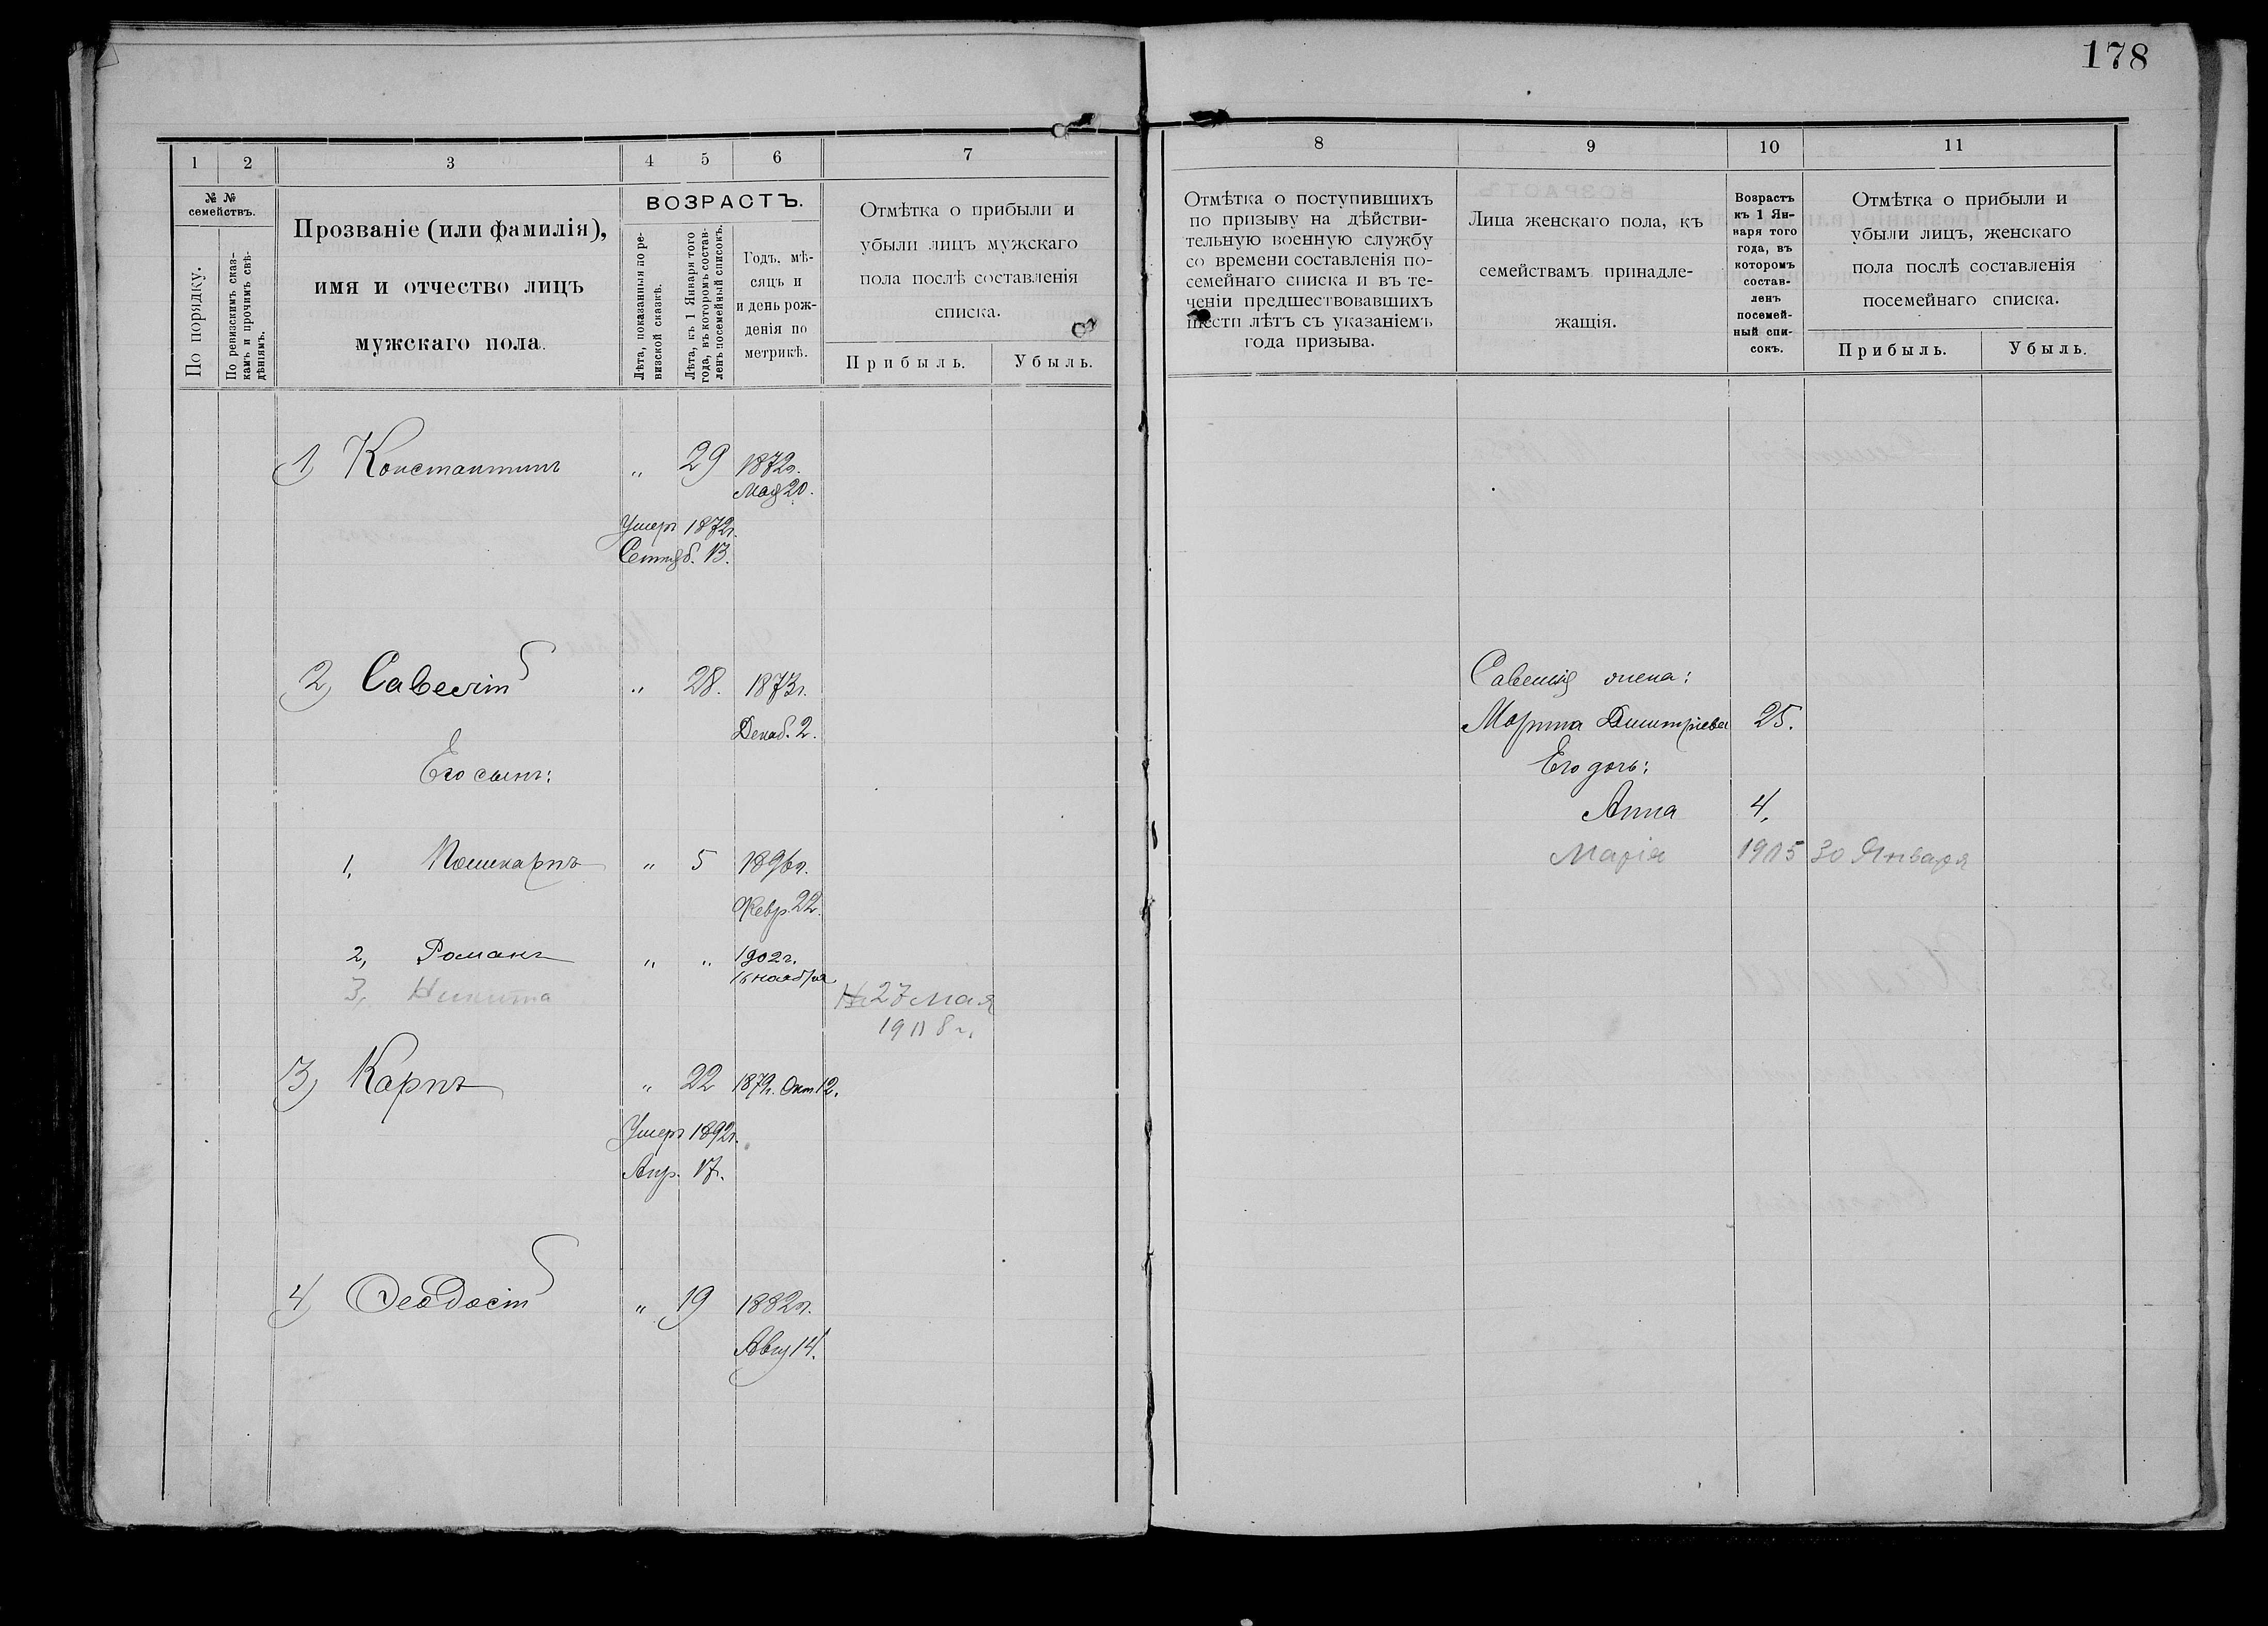 178
1 2 3 4 5 6 7
№ №
семействъ.
По порядку.
По ревизскимъ сказ-
камъ и прочимъ свѣ-
дѣніямъ.
Прозваніе (или фамилія),
имя и отчество лицъ
мужскаго пола.
ВОЗРАСТЪ.
Лѣта, показанныя по ре-
визской сказкѣ.
Лѣта, къ 1 Января того
года, въ которомъ состав-
ленъ посемейный списокъ.
Годъ, мѣ-
сяцъ и
и день рож-
денія по
метрикѣ.
Отмѣтка о прибыли и
убыли лицъ мужскаго
пола послѣ составленія
списка.
Прибыль. Убыль.
1) Константинъ " 29 1872г.
Мая 20.
Умеръ 1872г.
Сентяб. 13.
2) Савелій " 28. 1873г.
Декаб. 2.
Его сынъ:
1, Поликарпъ " 5 1896г.
Февр. 22.
2, Романъ " " 1902г.
16 ноября
3, Никита 27 Мая
1908г.
3) Карпъ " 22 1879г. Окт. 12.
Умеръ 1892г.
Апр. 17.
4) Ѳеодосій " 19 1882г.
Авгу 14.
8 9 10 11
Отмѣтка о поступившихъ
по призыву на дѣйстви-
тельную военную службу
со времени составленія по-
семейнаго списка и въ те-
ченіи предшествовавшихъ
шести лѣтъ съ указаніемъ
года призыва.
Лица женскаго пола, къ
семействамъ принадле-
жащія.
Возрастъ
къ 1 Ян-
варя того
года, въ
которомъ
состав-
ленъ
посемей-
ный спи-
сокъ.
Отмѣтка о прибыли и
убыли лицъ, женскаго
пола послѣ составленія
посемейнаго списка.
Прибыль. Убыль.
Савелія жена:
Марина Димитріева 25.
Его дочь:
Анна 4,
Марія 1905 30 Января